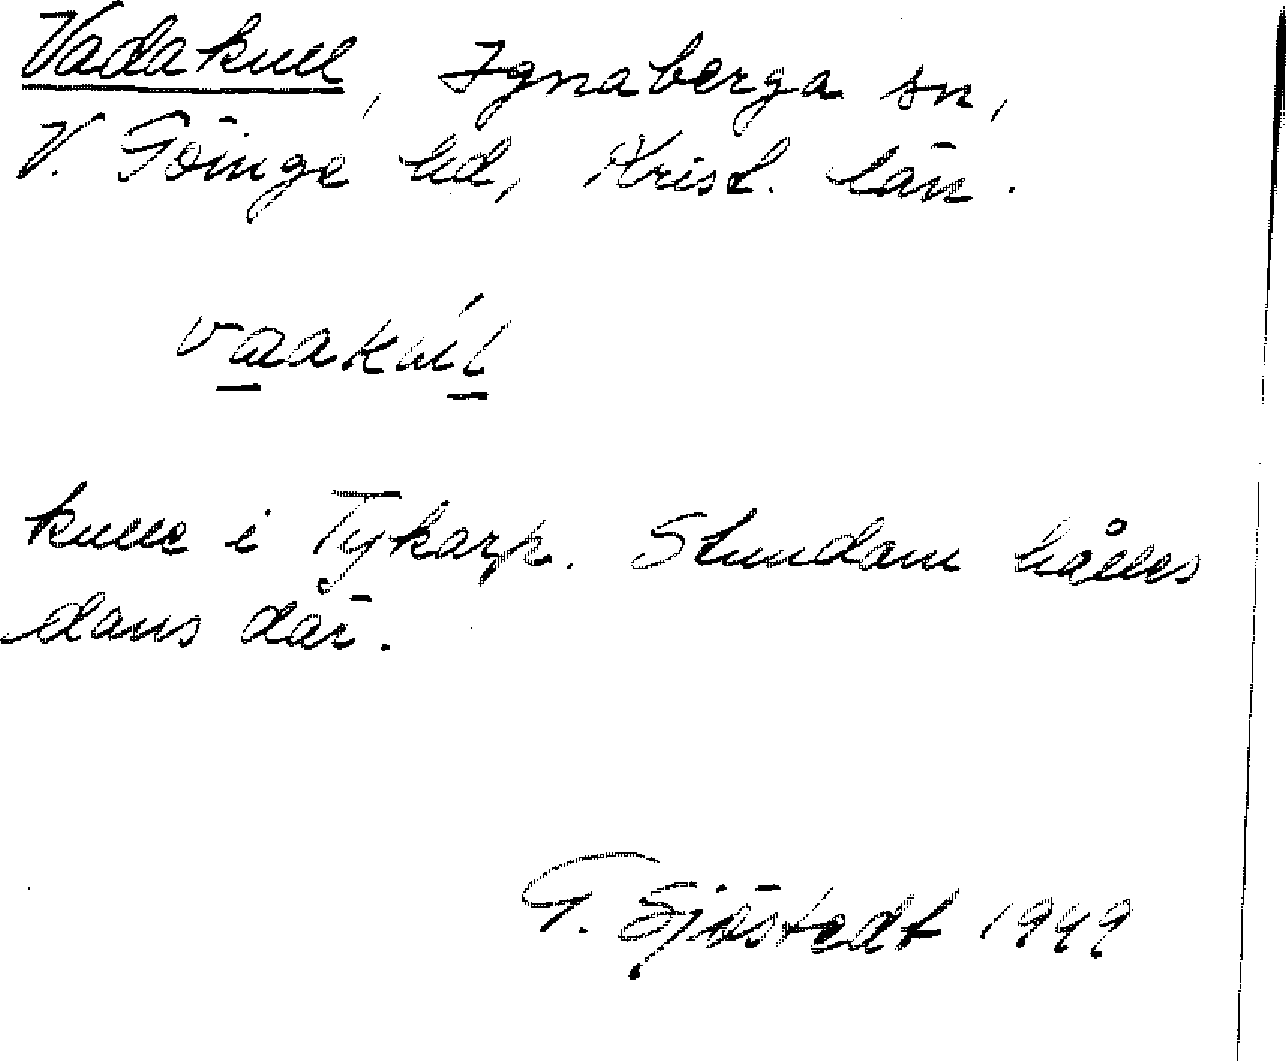 Vadakull, Ignaberga sn,
V. Göinge hd, Krist. län.
vaakúl
kulle i Tykarp. Stundam hålles
dans där.
G. Sjöstedt 1949